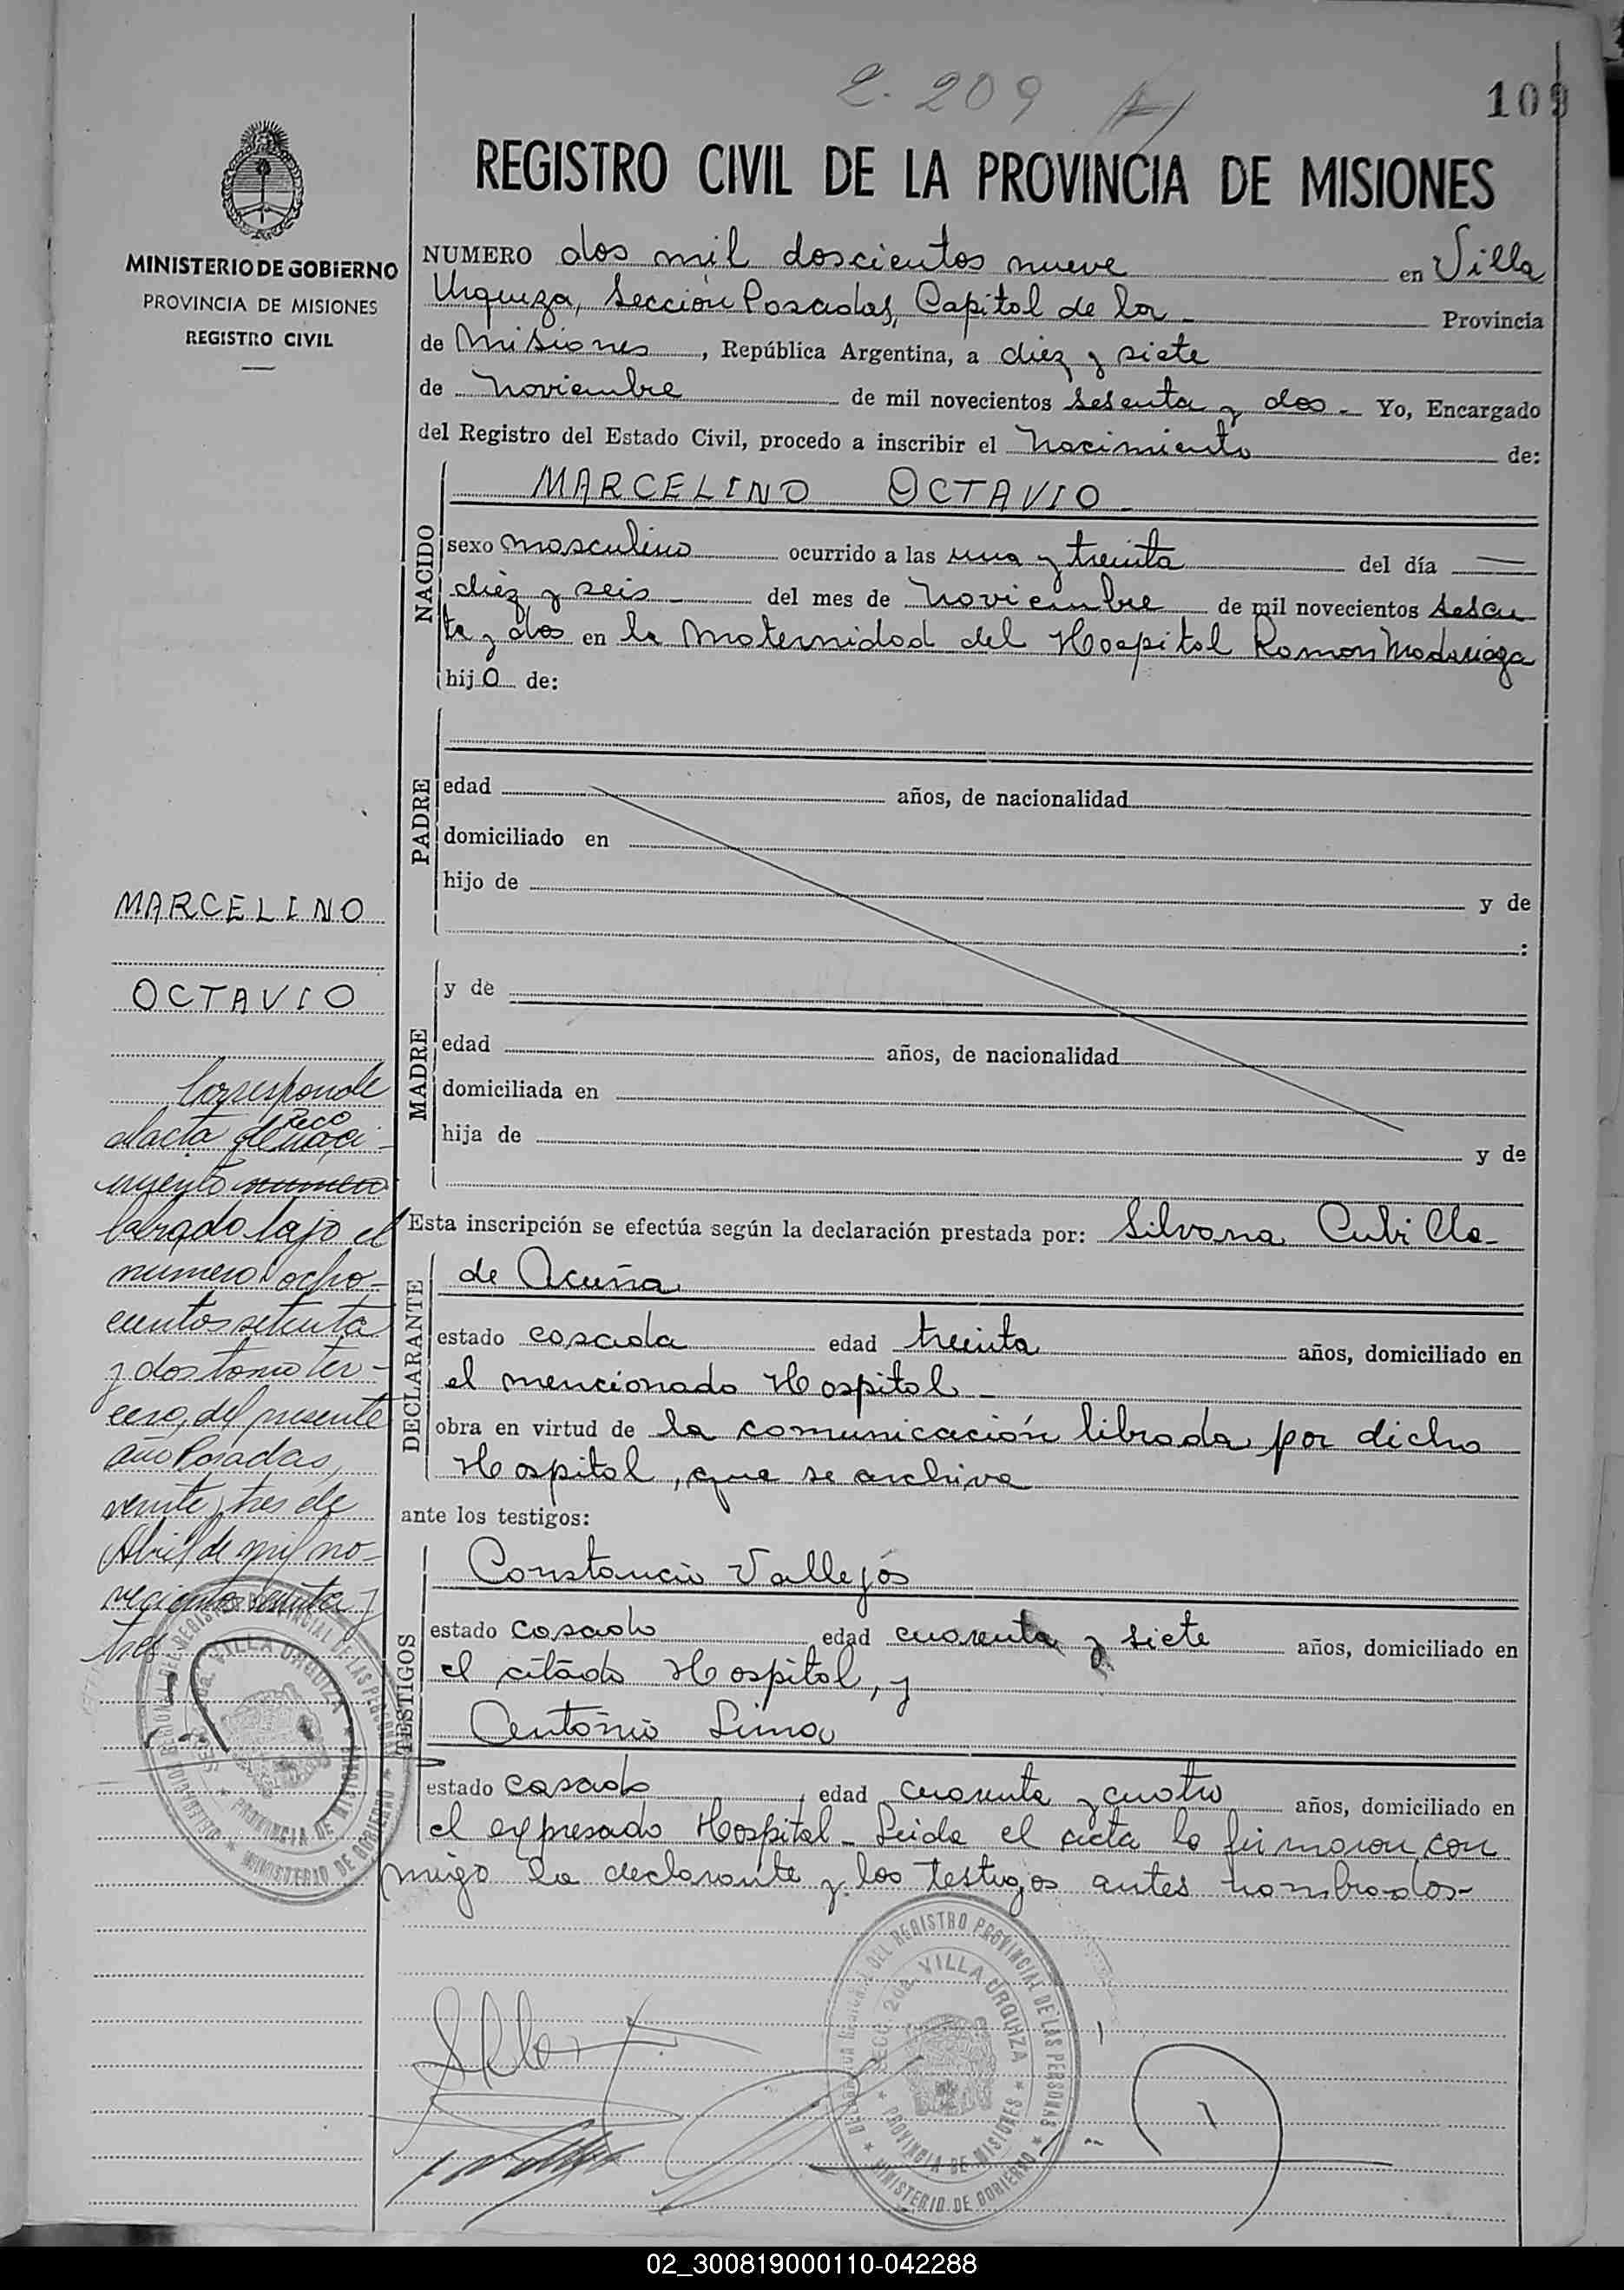 2.209
109
REGISTRO CIVIL DE LA PROVINCIA DE MISIONES
MINISTERIO DE GOBIERNO
PROVINCIA DE MISIONES
REGISTRO CIVIL
NUMERO dos mil doscientos nueve en Villa
Urquiza, Sección Posadas, Capital de la Provincia
de Misiones, República Argentina, a diez y siete
de Noviembre de mil novecientos sesenta y dos Yo, Encargado
del Registro del Estado Civil, procedo a inscribir el Nacimiento de:
NACIDO
MARCELINO OCTAVIO
sexo masculino ocurrido a las una y treinta del día
diez y seis del mes de Noviembre de mil novecientos sesen
ta y dos en la Maternidad del Hospital Ramon Madariaga
hijo de:
PADRE
edad años, de nacionalidad
domiciliado en
hijo de y de
:
MADRE
y de
edad años, de nacionalidad
domiciliada en
hija de y de
Esta inscripción se efectúa según la declaración prestada por: Silvana Cubilla
DECLARANTE
de Acuña
estado casada edad treinta años, domiciliado en
el mencionado Hospital
obra en virtud de la comunicación librada por dicho
Hospital, que se archiva
ante los testigos:
TESTIGOS
Constancio Vallejos
estado casado edad cuarenta y siete años, domiciliado en
el citado Hospital, y
Antonio Lima
estado casado edad cuarenta y cuatro años, domiciliado en
el expresado Hospital - Leida el acta la firmaron con
migo la declarante y los testigos antes nombrados-
MARCELINO
OCTAVIO
Corresponde
al acta de
Reco
noci-
miento numero
labrado bajo el
numero ocho-
cientos setenta
y dos tomo ter-
cero, del presente
año Posadas,
veinte y tres de
Abril de mil no-
vecientos sesenta y
tres
DEL REGISTRO PROVINCIAL DE LAS PERSONAS
SECC. 2da. VILLA URQUIZA
PROVINCIA DE MISIONES
MINISTERIO DE GOBIERNO
DEL REGISTRO PROVINCIAL DE LAS PERSONAS
SECC. 2da. VILLA URQUIZA
PROVINCIA DE MISIONES
MINISTERIO DE GOBIERNO
02_300819000110-042288